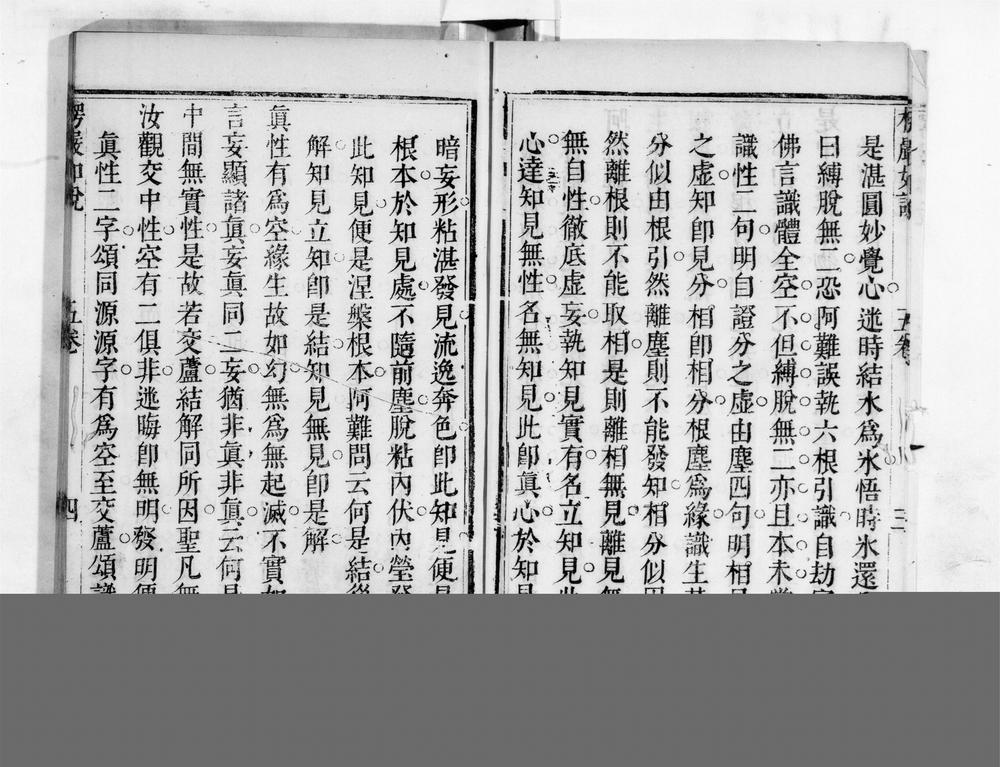 楞嚴如說 五卷 三
是湛圓妙覺心迷時結水爲氷悟時氷還
曰縛脫無二恐阿難誤執六根引識自劫
佛言識體全空不但縛脫無二亦且本未
識性二句明自證分之虛由塵四句明相
之虛知卽見分相卽相分根塵爲緣識生
分似由根引然離塵則不能發知相分似
然離根則不能取相是則離相無見離見
無自性徹底虛妄執知見實有名立知見
心達知見無性名無知見此卽眞心於知
暗妄形粘湛發見流逸奔色卽此知見便
根本於知見處不隨前塵脫粘內伏內瑩
此知見便是涅槃根本阿難問云何是結
解知見立知卽是結知見無見卽是解
眞性有爲空緣生故如幻無爲無起滅不實
言妄顯諸眞妄眞同二妄猶非眞非眞云何
中間無實性是故若交蘆結解同所因聖凡
汝觀交中性空有二俱非迷晦卽無明發明
眞性二字頌同源源字有爲空至交蘆頌
楞嚴如說 五卷 四